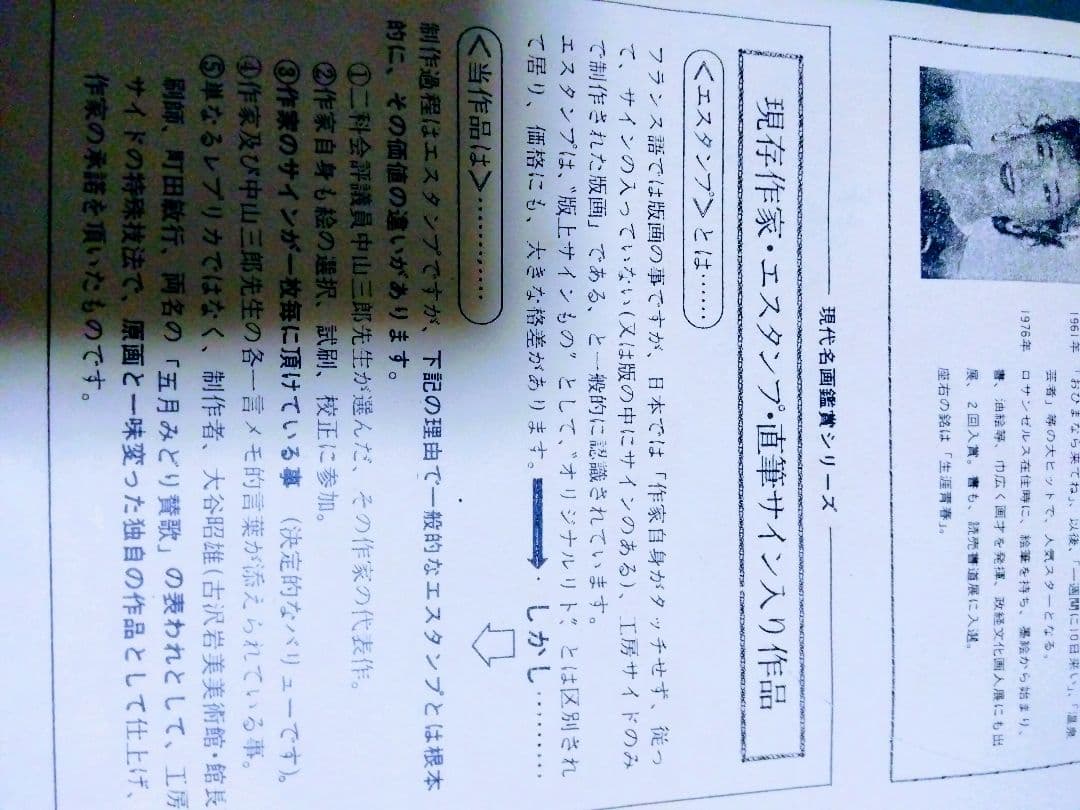 1961年 「おひまなら来てね」、以後、「一週間に10日来い」、「温泉
芸者」等の大ヒットで、人気スターとなる。
1976年 ロサンゼルス在住時に、絵筆を持ち、墨絵から始まり、
書、油絵等、巾広く画才を発揮、政経文化画人展にも出
展、2回入賞。書も、読売書道展に入選。
座右の銘は「生涯青春」。
現代名画鑑賞シリーズ
現存作家・エスタンプ・直筆サイン入り作品
<エスタンプ>とは……
フランス語では版画の事ですが、日本では「作家自身がタッチせず、従っ
て、サインの入っていない(又は版の中にサインのある)、工房サイドのみ
で制作された版画」である、と一般的に認識されています。
エスタンプは、“版上サインもの”として、“オリジナルリト”とは区別され
て居り、価格にも、大きな格差があります。 しかし………
<当作品は>…………
制作過程はエスタンプですが、下記の理由で一般的なエスタンプとは根本
的に、その価値の違いがあります。
①二科会評議員中山三郎先生が選んだ、その作家の代表作。
②作家自身も絵の選択、試刷、校正に参加。
③作家のサインが一枚毎に頂けている事 (決定的なバリューです)。
④作家及び中山三郎先生の各一言メモ的言葉が添えられている事。
⑤単なるレプリカではなく、制作者、大谷昭雄(古沢岩美美術館・館長
刷師、町田敏行、両名の「五月みどり賛歌」の表われとして、工房
サイドの特殊技法で、原画と一味変った独自の作品として仕上げ、
作家の承諾を頂いたものです。